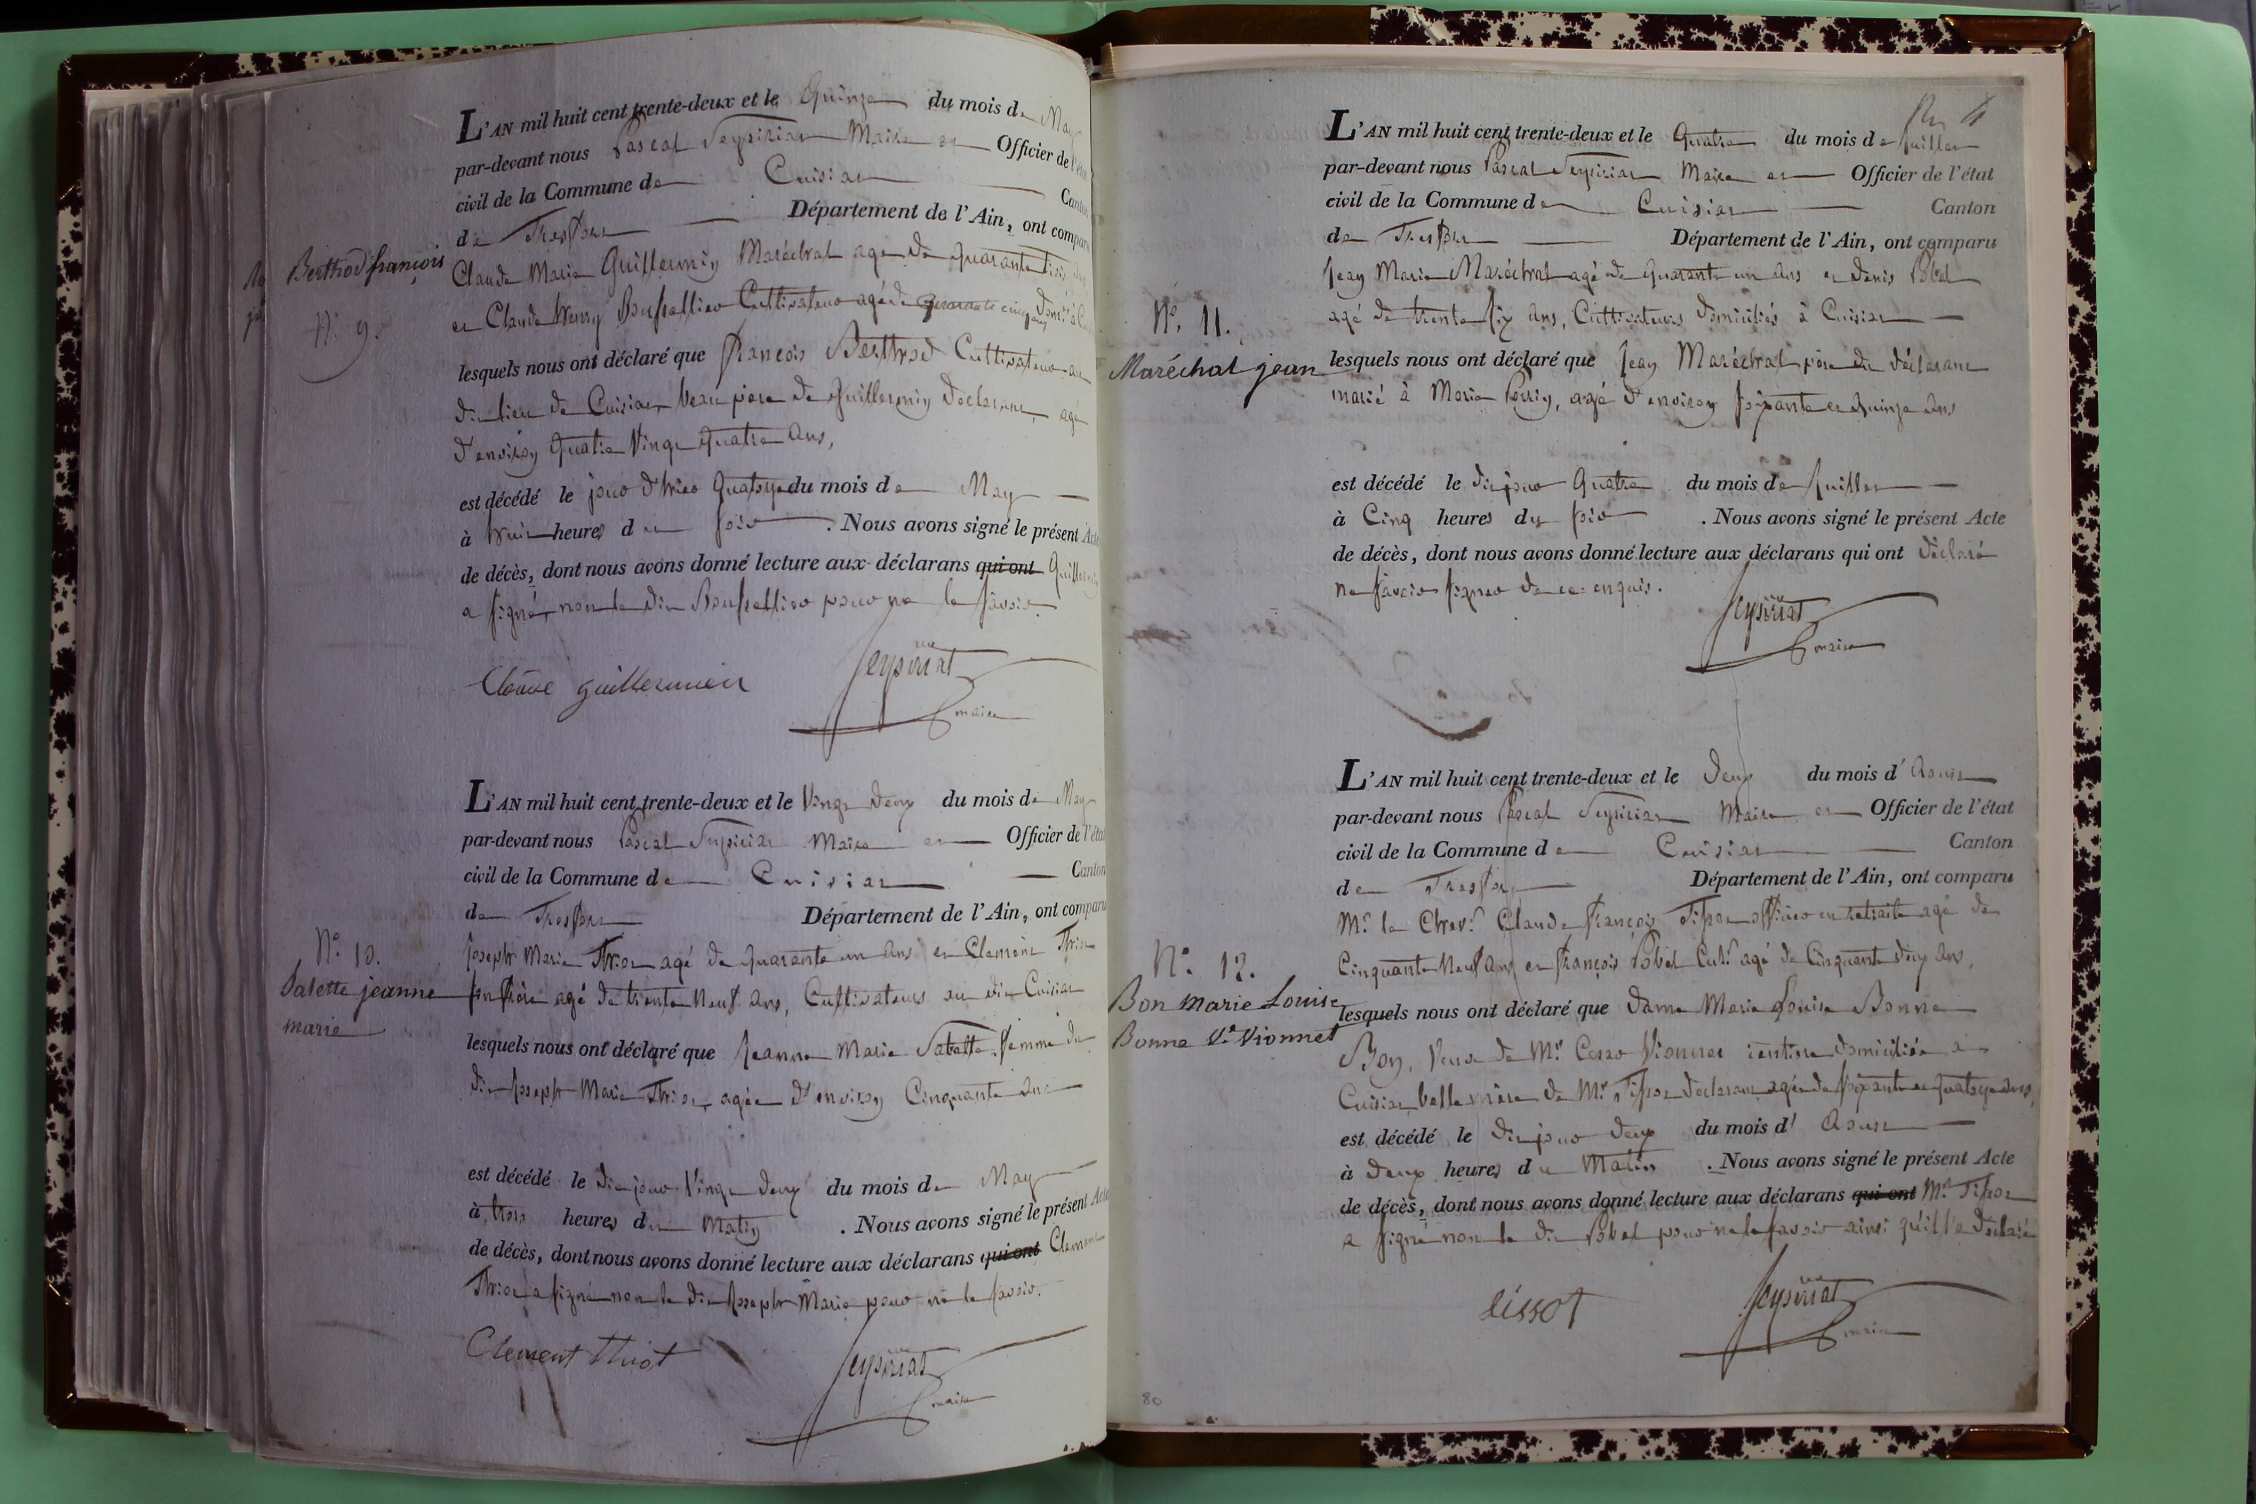 L'AN mil huit cent trente-deux et le Quinze du mois de May
par-devant nous Pascal Seysiriat Maire et Officier de l'état
civil de la Commune de Cuisiat Canton
de Treffort Département de l'Ain, ont comparu
Claude Marie Guillermin Maréchal agé de Quarante trois
et Claude Henry Boufsellier Cultivateur agé de Quarante cinq ans
lesquels nous ont déclaré que François Berthod Cultivateur au
dit lieu de Cuisiat, beau père de Guillermin Déclarant, agé
d'environ Quatre Vingt Quatre Ans,
est décédé le jour d'hier Quatorze du mois de May
à huit heures du soir . Nous avons signé le présent Acte
de décès, dont nous avons donné lecture aux déclarans qui ont Guillermin
a signé, non le dit Boufsellier pour ne le savoir
Claude guillermein Seysiriat
maire
Berthod françois
N.º 9.
L'AN mil huit cent trente-deux et le Vingt Deux du mois de May
par-devant nous Pascal Seysiriat Maire et Officier de l'état
civil de la Commune de Cuisiat Canton
de Treffort Département de l'Ain, ont comparu
Joseph Marie Thiot agé de Quarante un Ans et Clement Thiot
son frère agé de trente Neuf Ans, Cultivateurs au dit Cuisiat
lesquels nous ont déclaré que Jeanne Marie Sabette femme du
dit Joseph Marie Thiot, agée d'environ Cinquante Ans
est décédé le dit jour Vingt Deux du mois de May
à trois heures du Matin . Nous avons signé le présent Acte
de décès, dont nous avons donné lecture aux déclarans qui ont Clement
Thiot a signé non le dit Joseph Marie pour ne le savoir.
Clement thiot Seysiriat
maire
N.º 10.
Sabette jeanne
marie
L'AN mil huit cent trente-deux et le Quatre du mois de Juillet
par-devant nous Pascal Seysiriat Maire et Officier de l'état
civil de la Commune de Cuisiat Canton
de Treffort Département de l'Ain, ont comparu
Jean Marie Maréchal agé de Quarante un Ans et Denis Pobel
agé de trente six Ans, Cultivateurs domiciliés à Cuisiat
lesquels nous ont déclaré que Jean Maréchal père du déclarant
marié à Marie Perrin, agé d'environ soixante et Quinze Ans
est décédé le dit jour Quatre du mois de Juillet
à Cinq heures du soir . Nous avons signé le présent Acte
de décès, dont nous avons donné lecture aux déclarans qui ont déclaré
ne savoir signer de ce enquis.
Seysiriat
maire
N.º 11.
Maréchal jean
L'AN mil huit cent trente-deux et le Deux du mois d'Aoust
par-devant nous Pascal Seysiriat Maire et Officier de l'état
civil de la Commune de Cuisiat Canton
de Treffort Département de l'Ain, ont comparu
Mr. le Chev.r Claude François Tissot officier en retraite agé de
Cinquante Neuf Ans et François Pobel Cult.r agé de Cinquante Deux Ans,
lesquels nous ont déclaré que Dame Marie Louise Bonne
Bon, Veuve de Mr. Vionnet rentière domiciliée à
Cuisiat belle mère de Mr. Tissot Déclarant agée de soixante et Quatorze Ans,
est décédé le dit jour Deux du mois d'Aoust
à Deux heures du Matin . Nous avons signé le présent Acte
de décès, dont nous avons donné lecture aux déclarans qui ont Mr. Tissot
a signé non le dit Pobel pour ne le savoir ainsi qu'il l'a déclaré
Tissot Seysiriat
maire
N.º 12.
Bon marie Louise
Bonne V.e Vionnet
80